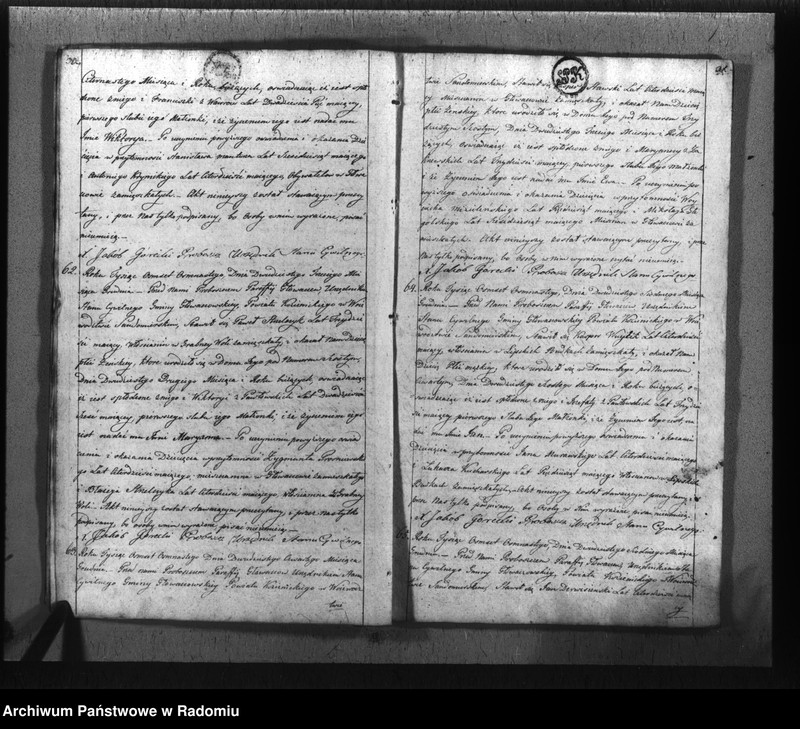 Czternastego Miesiąca i Roku bieżących, oświadczając iż iest spło-
dzone z niego i Franciszki z Lat Dwadzieścia Pięć maiący,
pierwszego slubu iego Małżonki, i że życzeniem iego iest nadać mu
Imie Wiktorya. Po uczynieniu powyższego oświadczenia i okazania Dzie-
cięcia w przytomności Stanisława Lat Sześdziesiąt maiącego
i Lat Czterdzieści maiącego, Obywatelów w
zamieszkałych. Akt ninieyszy został stawaiącym przeczy-
tany, i przez Nas tylko podpisany, bo Osoby w nim wyrażone, pisać
nieumieią.
X Jakób Garcelli Proboszcz Urzędnik Stanu Cywilnego
62. Roku Tysiąc Ośmset Osmnastego, Dnia Dwudziestego Trzeciego Mie-
siąca Grudnia. Przed Nami Proboszczem Paraffij Głowaczew Urzędnikiem
Stanu Cywilnego Gminy Głowaczewskiey Powiatu Kozienickiego w Wo-
iewodztwie Sandomirskim, Stawił się Paweł Strzelczyk Lat Trzydzie-
ści maiący, Włościanin w Brzalney Woli zamieszkały i okazał Nam Dziecie
płci Zeńskiey, które urodziło się w Domu Iego pod Numerem
Dnia Dwudziestego Drugiego Miesiąca i Roku bieżących, oświadczaiąc
iż iest spłodzone z niego i Wiktoryi z Lat Dwadzieścia
maiący, pierwszego slubu iego Małżonki i iż życzeniem iego
iest nadać mu Imie Maryanna. Po uczynieniu powyższego oświad-
czenia i okazania Dziecięcia w przytomności Zygmunta
Lat Czterdzieści maiącego, mieszczanina w Głowaczewie zamieszkałego
i Błażeja Strzelczyka Lat Czterdzieści maiącego Włościanina z Brzalney
Woli. Akt ninieyszy został stawaiącym przeczytany, i przez Nas tylko
podpisany, bo osoby w nim wyrażone pisać nieumieią.
X Jakób Garcelli Proboszcz Urzędnik Stanu Cywilnego
63. Roku Tysiąc Ośmset Osmnastego Dnia Dwudziestego Czwartego Miesiąca
Grudnia. Przed nami Proboszczem Paraffij Głowaczew Urzędnikiem Stanu
Cywilnego Gminy Głowaczewskiey Powiatu Kozienickiego w Woiewodz-
twie
twie Sandomirskim, Stawił się Lat Czterdzieści maią-
cy Mieszczanin w Głowaczewie zamieszkały, i okazał Nam Dziecie
płci Zeńskiey, które urodziło się w Domu Iego pod Numerem Trzy-
dziestym Szóstym, Dnia Dwudziestego Trzeciego Miesiąca i Roku bie-
żących, oświadczaiąc iż iest spłodzone z niego i Maryanny z
Lat Trzydzieści maiący, pierwszego slubu Iego Małżonki
i iż Zyczeniem Iego iest nadać mu Imie Ewa. Po uczynieniu po-
wyższego oświadczenia i okazania Dziecięcia w przytomności
Lat Piędziesiąt maiącego i Mikołaja
Lat Sześdziesiąt maiącego Mieszczan w Głowaczewie za-
mieszkałych. Akt ninieyszy został stawaiącym przeczytany, i przez
Nas tylko podpisany, bo osoby w nim wyrażone pisać nieumieią.
X Jakób Garcelli Proboszcz Urzędnik Stanu Cywilnego
64. Roku Tysiąc Ośmset Osmnastego, Dnia Dwudziestego Siodmego Miesiąca
Grudnia. Przed Nami Proboszczem Paraffij Głowaczew Urzędnikiem
Stanu Cywilnego Gminy Głowaczewskiey Powiatu Kozienickiego w Wo-
iewodztwie Sandomirskim, Stawił się Kacper Woytik Lat Czterdzieści
maiący, Włościanin w Lipskich Budkach zamieszkały, i okazał Nam
Dziecie Płci męzkiey, które urodziło się w Domu Iego pod Numerem
Czwartym, Dnia Dwudziestego Szóstego Miesiąca i Roku bieżących o-
świadczaiąc iż iest spłodzone z niego i z Lat Trzydzie-
ści maiący pierwszego slubu Iego Małżonki, i iż Zyczeniem Iego iest, na-
dać mu Imie Jan. Po uczynieniu powyższego oświadczenia i okazania
Dziecięcia w przytomności Jana Lat Czterdzieści maiącego
i Łukasza Lat Piędziesiąt maiącego Włościanów w Lipskich
Budkach zamieszkałych. Akt ninieyszy został stawaiącym przeczytany i
przez Nas tylko podpisany, bo Osoby w nim wyrażone pisać nieumieią.
X Jakób Garcelli Proboszcz Urzędnik Stanu Cywilnego
65. Roku Tysiąc Ośmset Osmnastego, Dnia Dwudziestego Siodmego Miesiąca
Grudnia. Przed Nami Proboszczem Paraffij Głowaczew, Urzędnikiem Sta-
nu Cywilnego Gminy Głowaczewskiey, Powiatu Kozienickiego w Woiewodz-
twie Sandomirskim, Stawił się Jan Lat Czterdzieści maią-
Archiwum Państwowe w Radomiu